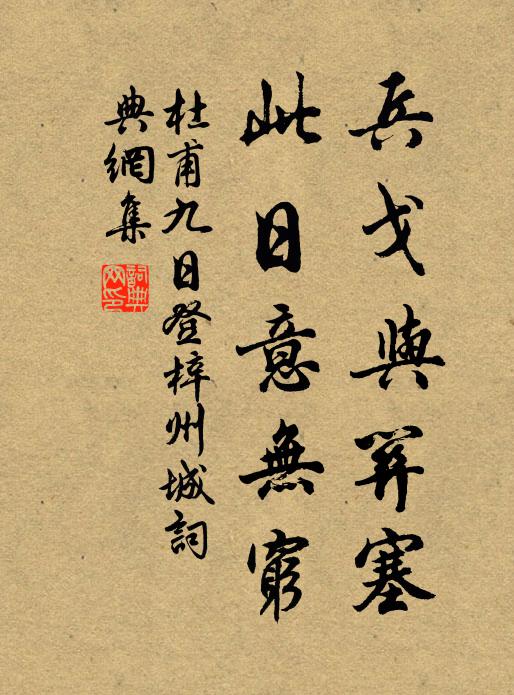 兵戈與關塞
此日意無窮
杜甫九日登梓州城詞
典網集
詞典
网印